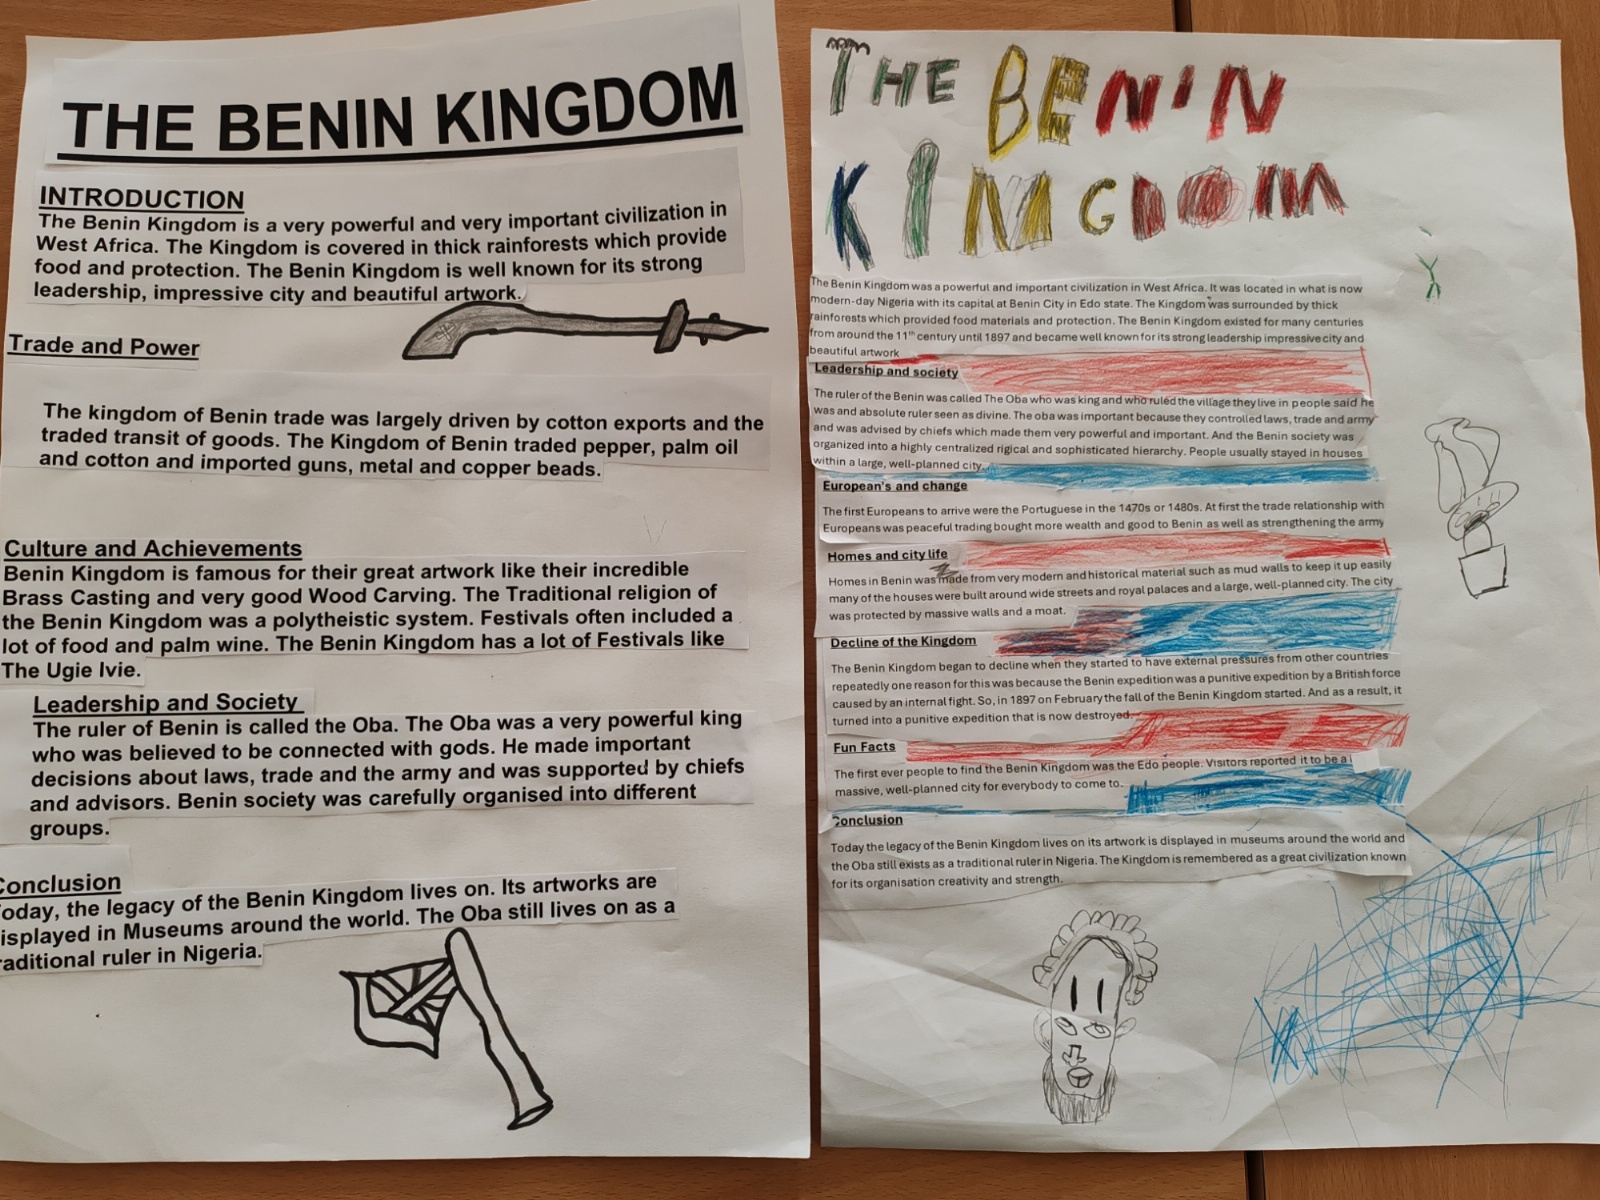 THE BENIN KINGDOM
INTRODUCTION
The Benin Kingdom is a very powerful and very important civilization in
West Africa. The Kingdom is covered in thick rainforests which provide
food and protection. The Benin Kingdom is well known for its strong
leadership, impressive city and beautiful artwork.
Trade and Power
The kingdom of Benin trade was largely driven by cotton exports and the
traded transit of goods. The Kingdom of Benin traded pepper, palm oil
and cotton and imported guns, metal and copper beads.
Culture and Achievements
Benin Kingdom is famous for their great artwork like their incredible
Brass Casting and very good Wood Carving. The Traditional religion of
the Benin Kingdom was a polytheistic system. Festivals often included a
lot of food and palm wine. The Benin Kingdom has a lot of Festivals like
The Ugie Ivie.
Leadership and Society
The ruler of Benin is called the Oba. The Oba was a very powerful king
who was believed to be connected with gods. He made important
decisions about laws, trade and the army and was supported by chiefs
and advisors. Benin society was carefully organised into different
groups.
Conclusion
oday, the legacy of the Benin Kingdom lives on. Its artworks are
isplayed in Museums around the world. The Oba still lives on as a
raditional ruler in Nigeria.
THE BENIN
KINGDOM
The Benin Kingdom was a powerful and important civilization in West Africa. It was located in what is now
modern-day Nigeria with its capital at Benin City in Edo state. The Kingdom was surrounded by thick
rainforests which provided food materials and protection. The Benin Kingdom existed for many centuries
from around the 11th century until 1897 and became well known for its strong leadership impressive city and
beautiful artwork
Leadership and society
The ruler of the Benin was called The Oba who was king and who ruled the village they live in people said he
was and absolute ruler seen as divine. The oba was important because they controlled laws, trade and army
and was advised by chiefs which made them very powerful and important. And the Benin society was
organized into a highly centralized rigical and sophisticated hierarchy. People usually stayed in houses
within a large, well-planned city.
European's and change
The first Europeans to arrive were the Portuguese in the 1470s or 1480s. At first the trade relationship with
Europeans was peaceful trading bought more wealth and good to Benin as well as strengthening the army
Homes and city life
Homes in Benin was made from very modern and historical material such as mud walls to keep it up easily
many of the houses were built around wide streets and royal palaces and a large, well-planned city. The city
was protected by massive walls and a moat.
Decline of the Kingdom
The Benin Kingdom began to decline when they started to have external pressures from other countries
repeatedly one reason for this was because the Benin expedition was a punitive expedition by a British force
caused by an internal fight. So, in 1897 on February the fall of the Benin Kingdom started. And as a result, it
turned into a punitive expedition that is now destroyed.
Fun Facts
The first ever people to find the Benin Kingdom was the Edo people. Visitors reported it to be a
massive, well-planned city for everybody to come to.
Conclusion
Today the legacy of the Benin Kingdom lives on its artwork is displayed in museums around the world and
the Oba still exists as a traditional ruler in Nigeria. The Kingdom is remembered as a great civilization known
for its organisation creativity and strength.